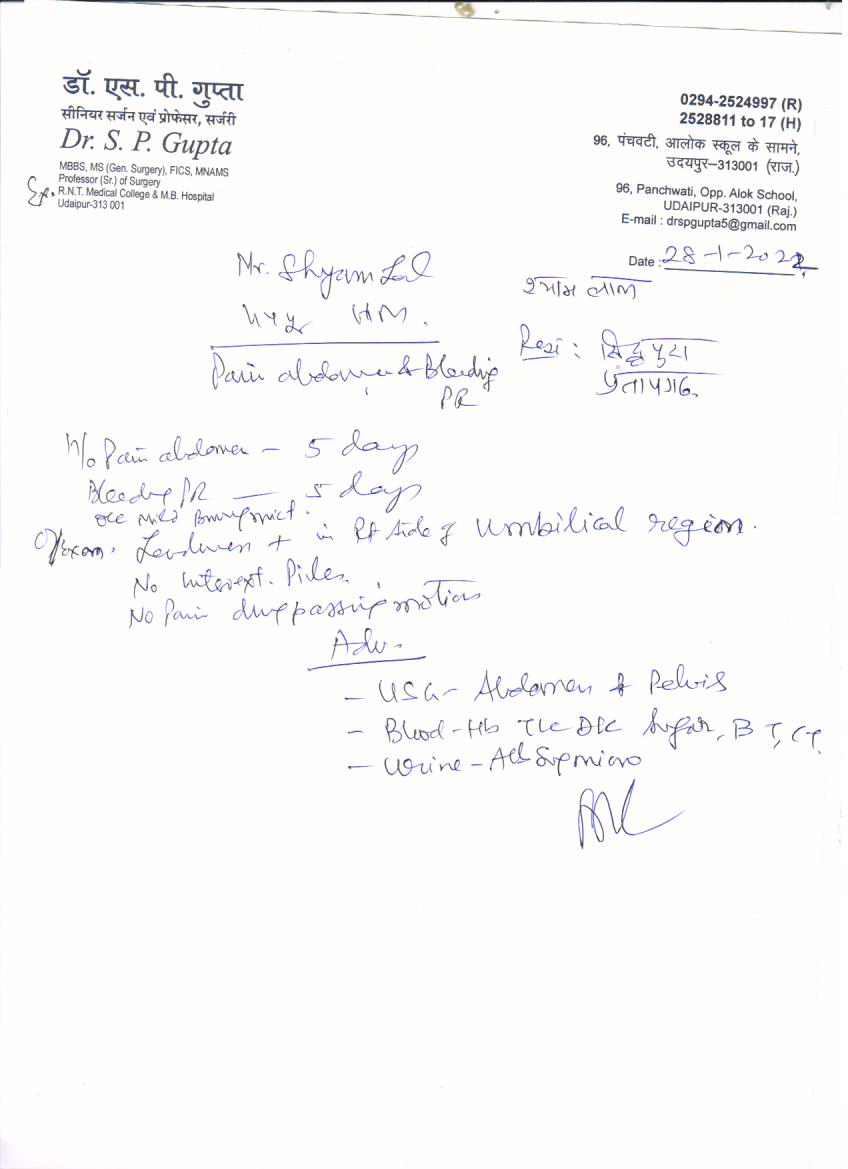 डॉ. एस. पी. गुप्ता
सीनियर सर्जन एवं प्रोफेसर, सर्जरी
Dr. S. P. Gupta
MBBS, MS (Gen. Surgery), FICS, MNAMS
Professor (Sr.) of Surgery
Ex. R.N.T. Medical College & M.B. Hospital
Udaipur-313 001
0294-2524997 (R)
2528811 to 17 (H)
96, पंचवटी, आलोक स्कूल के सामने,
उदयपुर–313001 (राज.)
96, Panchwati, Opp. Alok School,
UDAIPUR-313001 (Raj.)
E-mail : drspgupta5@gmail.com
Date : 28-1-2022
Mr. Shyam Lal
श्याम लाल
HM.
Resi : सिद्धपुरा
प्रतापगढ़
Pain abdomen & Bleeding
PR
H/o Pain abdomen – 5 days
Bleeding PR — 5 days
Occ Mild
O/Exam. + in Rt Side of Umbilical region.
No Int. ext. Piles.
No Pain during passing motions
Adv.
– USG – Abdomen & Pelvis
– Blood – Hb TLC DLC Sugar, BT, CT.
– Urine – Alb Sug micro